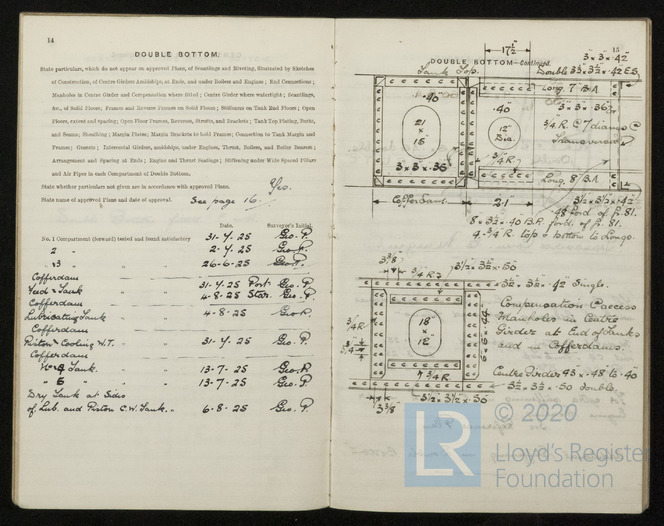 14
DOUBLE BOTTOM.
State particulars, which do not appear on approved Plans, of Scantlings and Riveting, illustrated by Sketches
of Construction, of Centre Girders Amidships, at Ends, and under Boilers and Engines; End Connections;
Manholes in Centre Girder and Compensation where fitted; Centre Girder where watertight; Scantlings,
&c., of Solid Floors; Frames and Reverse Frames on Solid Floors; Stiffeners on Tank End Floors; Open
Floors, extent and spacing; Open Floor Frames, Reverses, Struts, and Brackets; Tank Top Plating, Butts,
and Seams; Sheathing; Margin Plates; Margin Brackets to hold Frames; Connection to Tank Margin and
Frames; Gussets; Intercostal Girders, amidships, under Engines, Thrust, Boilers, and Boiler Bearers;
Arrangement and Spacing at Ends; Engine and Thrust Seatings; Stiffening under Wide Spaced Pillars
and Air Pipes in each Compartment of Double Bottom.
State whether particulars not given are in accordance with approved Plans. Yes.
State name of approved Plans and date of approval. See page 16.
Date. Surveyor's Initials.
No. 1 Compartment (forward) tested and found satisfactory 31-7-25 Geo. P.
2 " " " 2-7-25 Geo. P.
3 " " " 26-6-25 Geo. P.
Cofferdam
Feed Tank " " 31-7-25 Port Geo. P.
Cofferdam 4-8-25 Star. Geo. P.
Lubricating Tank " " 4-8-25 Geo. P.
Cofferdam
Piston Cooling W.T. 31-7-25 Geo. P.
Cofferdam
Tank. " " 13-7-25 Geo. P.
6 " " " 13-7-25 Geo. P.
Dry Tank at Sides
of Lub. and Piston C.W. Tank. " 6-8-25 Geo. P.
15
DOUBLE BOTTOM—Continued.
17½"
3 × 3 × ·42
Tank Top.
Double 3½ × 3½ × ·42 ES
Long. 7" BA
·40
·40
3 × 3 × 36
21 × 15
12" Dia.
3/4 R. C 7 diams C
Transverses
3/4 R
3 × 3 × 36
Long. 8" BA
2·1
3½ × 3½ × ·42
·48 ford of fr 81.
8 × 3½ × ·40 B.R. ford. of fr. 81.
4-3/4 R. top & bottom to Longs.
3 3/8
3/4 R
3½ × 3½ × ·50
3½ × 3½ × ·42 Single.
Compensation @ access
Manholes in Centre
Girder at End of Tanks
and in Cofferdams.
18 × 12
3/4 R
6 × 6 × ·44
7 3/4 R
Centre Girder 43 × ·48 to ·40
3½ × 3½ × ·50 double.
3 3/8
3½ × 3½ × ·50
© 2020
LR
Lloyd's Register
Foundation